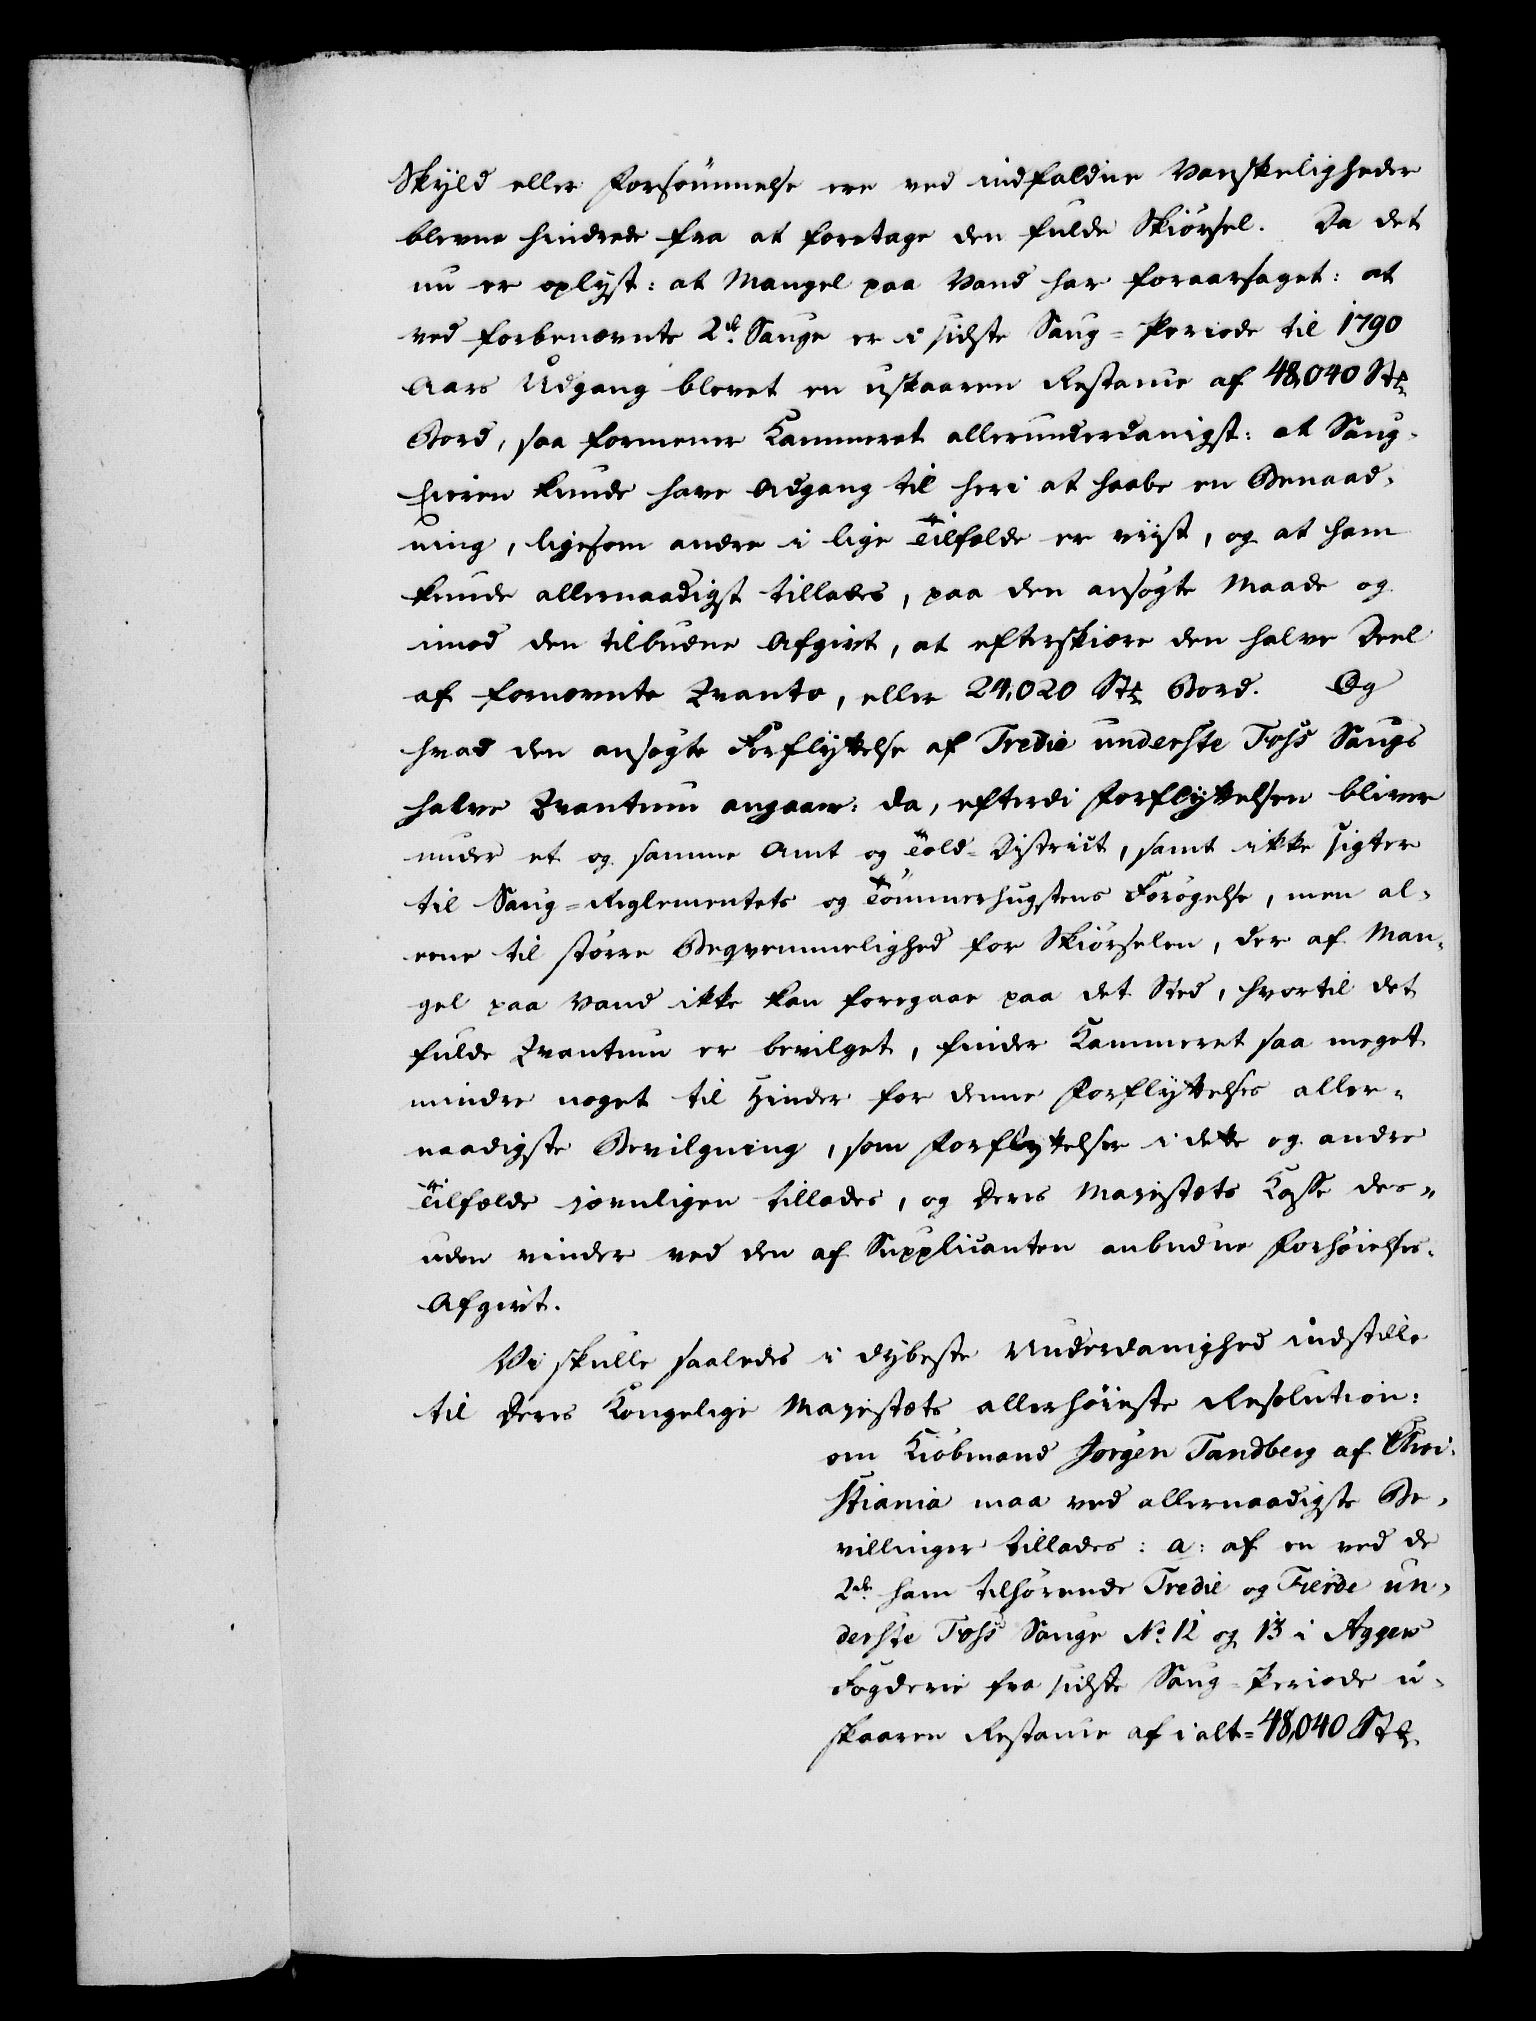 Skyld eller Forsømmelse ere ved indfaldne Vanskeligheder
blevne hindrede fra at foretage den fulde Skiørsel. Da det
nu er oplyst: at Mangel paa Vand har foraarsaget: at
ved forbenævnte 2de Sauge er i sidste Saug-Periode til 1790
Aars Udgang blevet en uskaaren Restance af 48,040 Stkr
Bord, saa formener Kammeret allerunderdanigst: at Saug-
Eieren kunde have Adgang til heri at haabe en Benaad-
ning, ligesom andre i lige Tilfælde er viist, og at ham
kunde allernaadigst tillades, paa den ansøgte Maade og
imod den tilbudne Afgivt, at efterskiære den halve Deel
af fornævnte Qvanto, eller 24,020 Stkr Bord. Og
hvad den ansøgte Forflyttelse af Tredie underste Foss Saugs
halve Qvantum angaaer: da, efterdi Forflyttelsen bliver
under et og samme Amt og Told-District, samt ikke sigter
til Saug-Reglementets og Tømmerhugstens Forøgelse, men al-
eene til større Beqvemmelighed for Skiørselen, der af Man-
gel paa Vand ikke kan foregaae paa det Sted, hvortil det
fulde Qvantum er bevilget, finder Kammeret saa meget
mindre noget til Hinder for denne Forflyttelses aller-
naadigste Bevilgning, som Forflyttelser i dette og andre
Tilfælde jævnligen tillades, og Deres Majestæts Kasse des-
uden vinder ved den af Supplicanten anbudne Forhøielses-
Afgivt.
Vi skulle saaledes i dybeste Underdanighed indstille
til Deres Kongelige Majestæts allerhøieste Resolution:
om Kiøbmand Jørgen Tandberg af Chri-
stiania maa ved allernaadigste Be-
villinger tillades: a: af en ved de
2de ham tilhørende Tredie og Fierde un-
derste Foss Sauge No 12 og 13 i Aggers
Fogderie fra sidste Saug-Periode u-
skaaren Restance af i alt 48,040 Stkr